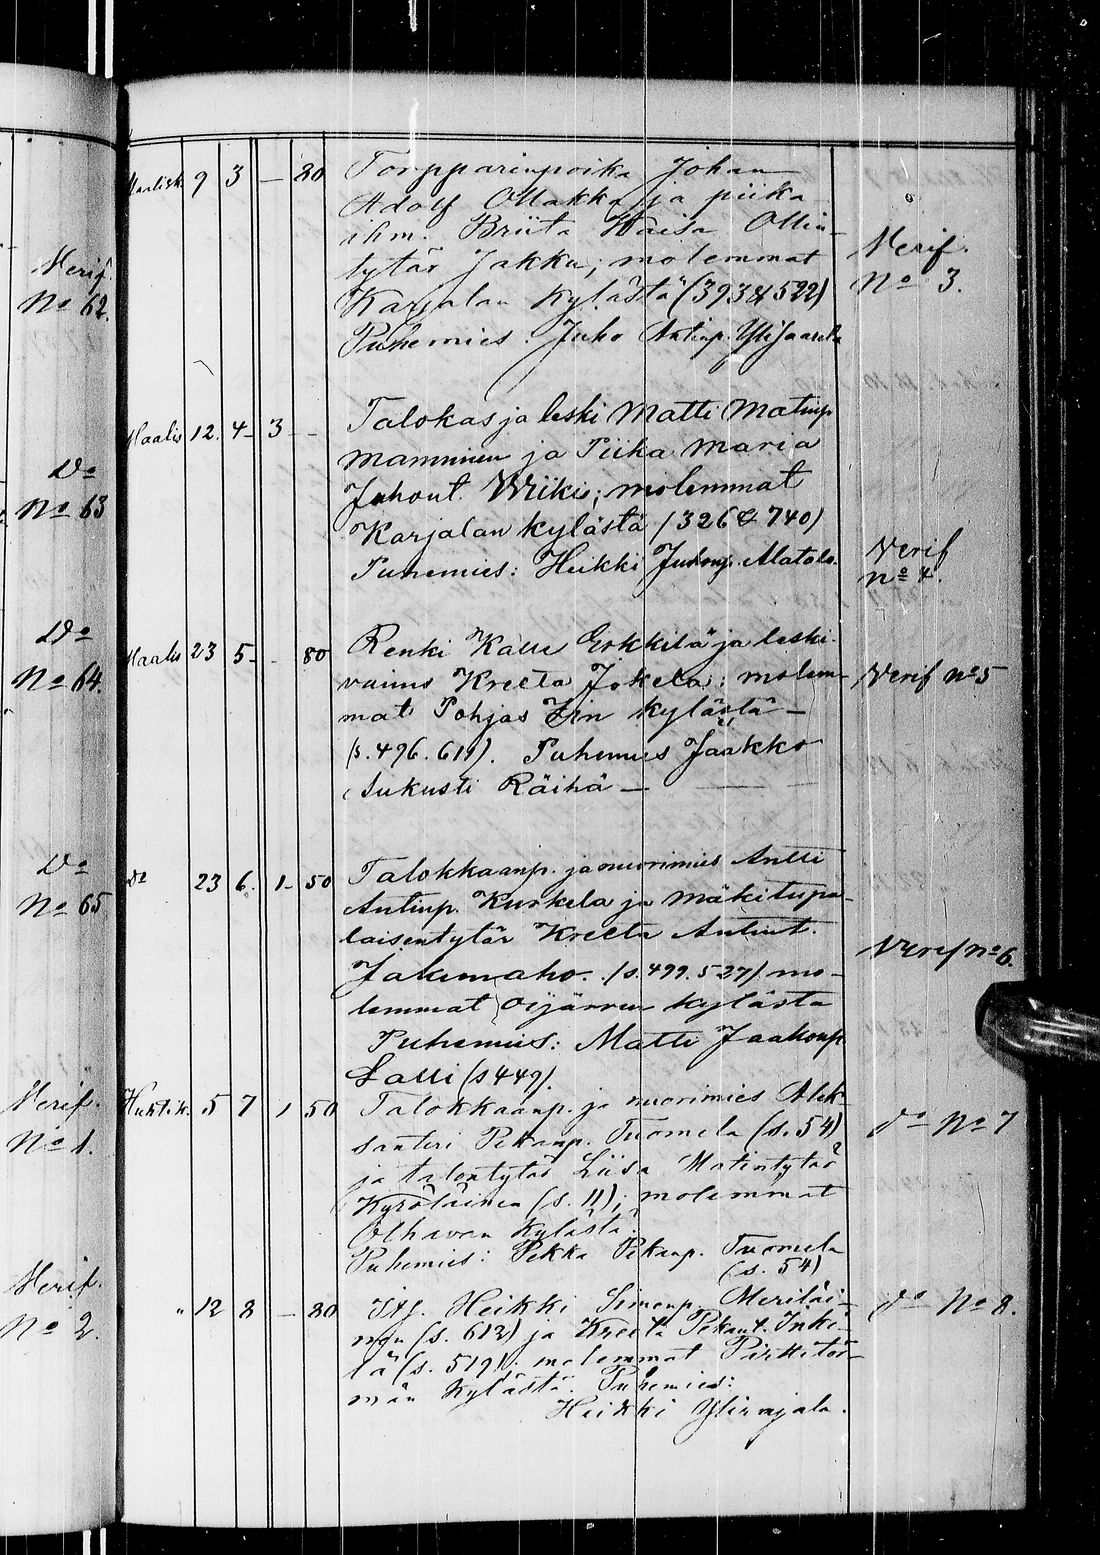 Verif.
No 62.
Do
No 63
Do
No 64.
Do
No 65
Verif.
No 1.
Verif.
No 2.
Maalisk. 9 3 — 80 Torpparinpoika Johan
Adolf Ollakka ja piika
ihm. Briita Kaisa Ollin-
tytär Jakku; molemmat
Karjalan kylästä (393 & 522)
Puhemies: Juho Antinp. Ylisaarela
Verif.
No 3.
Maalis 12. 4 3 — Talokas ja leski Matti Matinp
Mamminen ja Piika Maria
Juhont. Wiikis; molemmat
Karjalan kylästä (326 & 740)
Puhemies: Heikki Juhonp. Alatalo.
Verif
No 4.
Maalis 23 5 — 80 Renki Kalle Erkkilä ja leski-
vaimo Kreeta Jokela; molem-
mat Pohjas Iin kylästä —
(s. 496. 611). Puhemies Jaakko
Aukusti Räihä —
Verif No 5
do 23 6. 1 50 Talokkaanp. ja nuorimies Antti
Antinp. Kurkela ja mäkitupa-
laisentytär Kreeta Antint.
Jakunaho. (s. 499. 527) mo-
lemmat Oijärven kylästä
Puhemies: Matti Jaakonp.
Lalli (s 449).
Verif No 6.
Huhtik. 5 7 1 50 Talokkaanp. ja nuorimies Alek-
santeri Pekanp. Tuomela (s. 54)
ja talontytär Liisa Matintytär
Kyröläinen (s. 11); molemmat
Olhavan kylästä.
Puhemies: Pekka Pekanp. Tuomela
(s. 54)
do No 7
" 12 8 — 80 Its. Heikki Simonp. Meriläi-
nen (s. 612) ja Kreeta Pekant. Inki-
lä (s. 519); molemmat Pirttitör-
män kylästä. Puhemies:
Heikki Ylirajala.
do No 8.